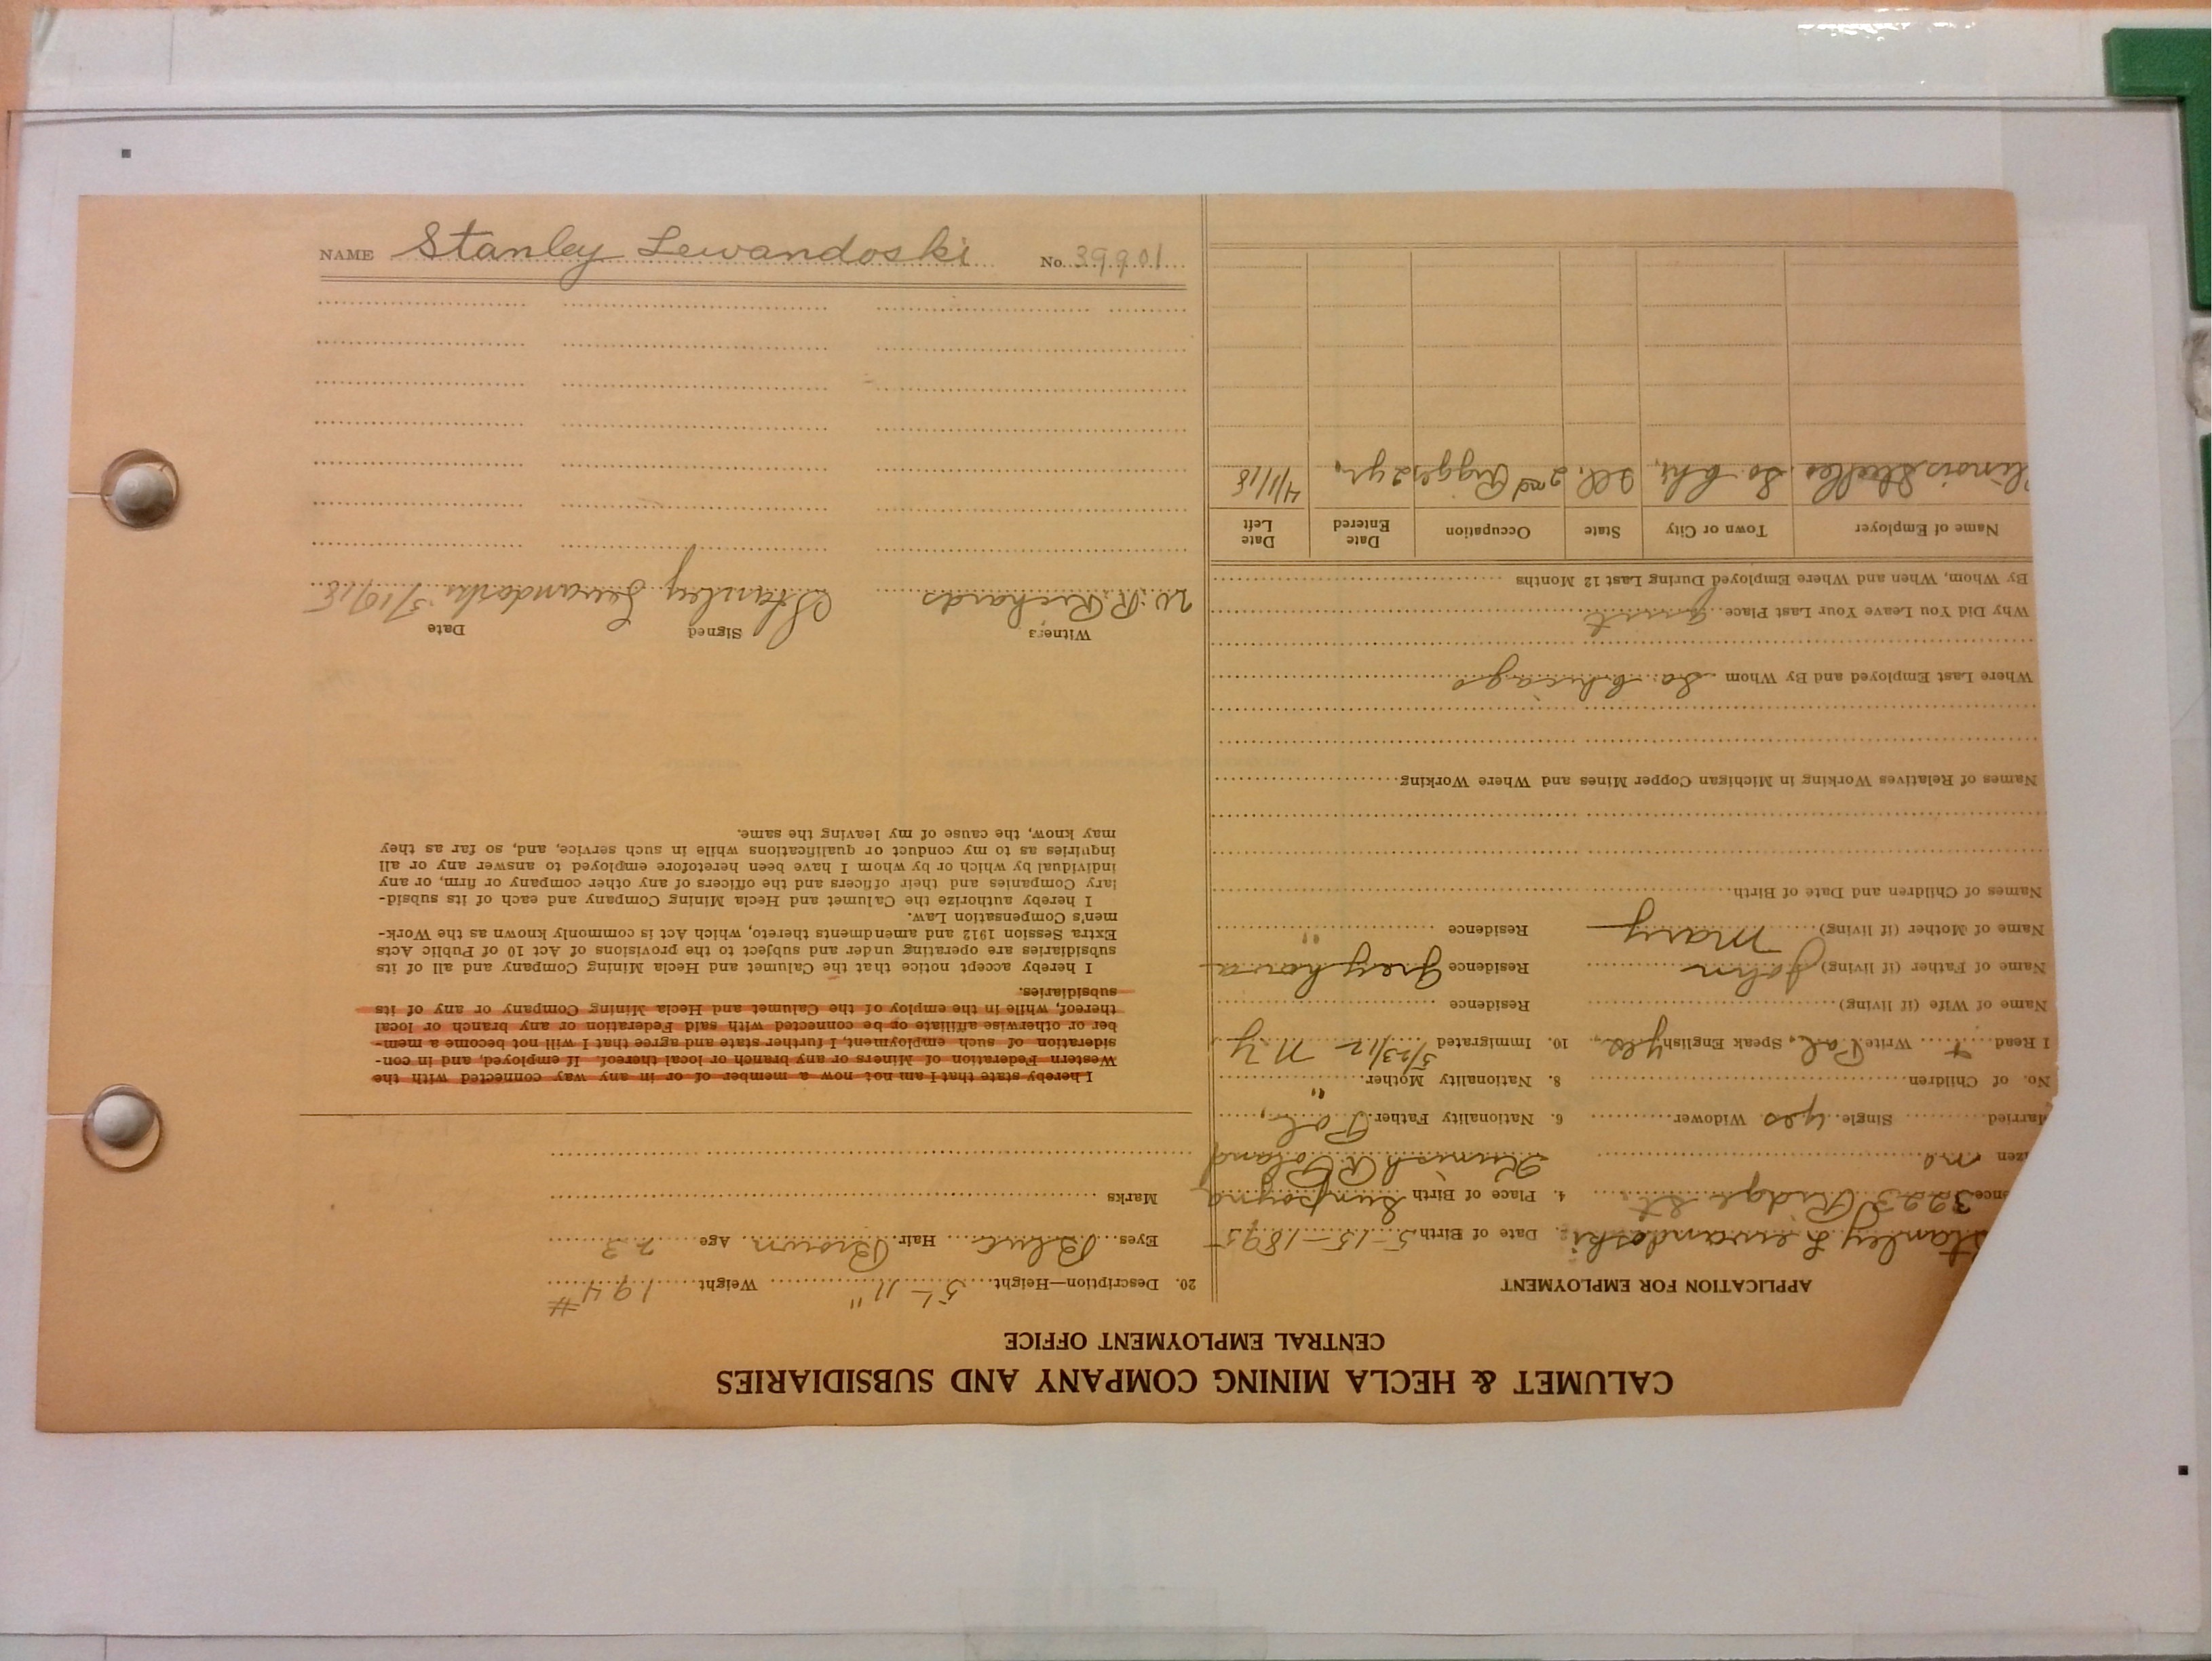 NAME Stanley Lewandoski No. 39901
CALUMET & HECLA MINING COMPANY AND SUBSIDIARIES
CENTRAL EMPLOYMENT OFFICE
APPLICATION FOR EMPLOYMENT
Stanley Lewandoski 2. Date of Birth 5-15-1895
3223 Ridge St. 4. Place of Birth
no Poland
Married Single yes Widower 6. Nationality Father Pol.
No. of Children 8. Nationality Mother "
I Read + Write Pol. Speak English yes 10. Immigrated 5/23/12 N.Y
Name of Wife (if living) Residence
Name of Father (if living) John Residence
Name of Mother (if living) Mary Residence "
Names of Children and Date of Birth
Names of Relatives Working in Michigan Copper Mines and Where Working
Where Last Employed and By Whom So. Chicago
Why Did You Leave Your Last Place quit
By Whom, When and Where Employed During Last 12 Months
Name of Employer Town or City State Occupation Date Entered Date Left
So. Chi. Ill. 2nd Rigger 2 yr. 4/1/18
20. Description—Height 5'-11" Weight 194#
Eyes Blue Hair Brown Age 23
Marks
I hereby state that I am not now a member of or in any way connected with the
Western Federation of Miners or any branch or local thereof. If employed, and in con-
sideration of such employment, I further state and agree that I will not become a mem-
ber or otherwise affiliate or be connected with said Federation or any branch or local
thereof, while in the employ of the Calumet and Hecla Mining Company or any of its
subsidiaries.
I hereby accept notice that the Calumet and Hecla Mining Company and all of its
subsidiaries are operating under and subject to the provisions of Act 10 of Public Acts
Extra Session 1912 and amendments thereto, which Act is commonly known as the Work-
men's Compensation Law.
I hereby authorize the Calumet and Hecla Mining Company and each of its subsid-
iary Companies and their officers and the officers of any other company or firm, or any
individual by which or by whom I have been heretofore employed to answer any or all
inquiries as to my conduct or qualifications while in such service, and, so far as they
may know, the cause of my leaving the same.
Witness Signed Date
W. R. Richards Stanley Lewandoski 5/10/18